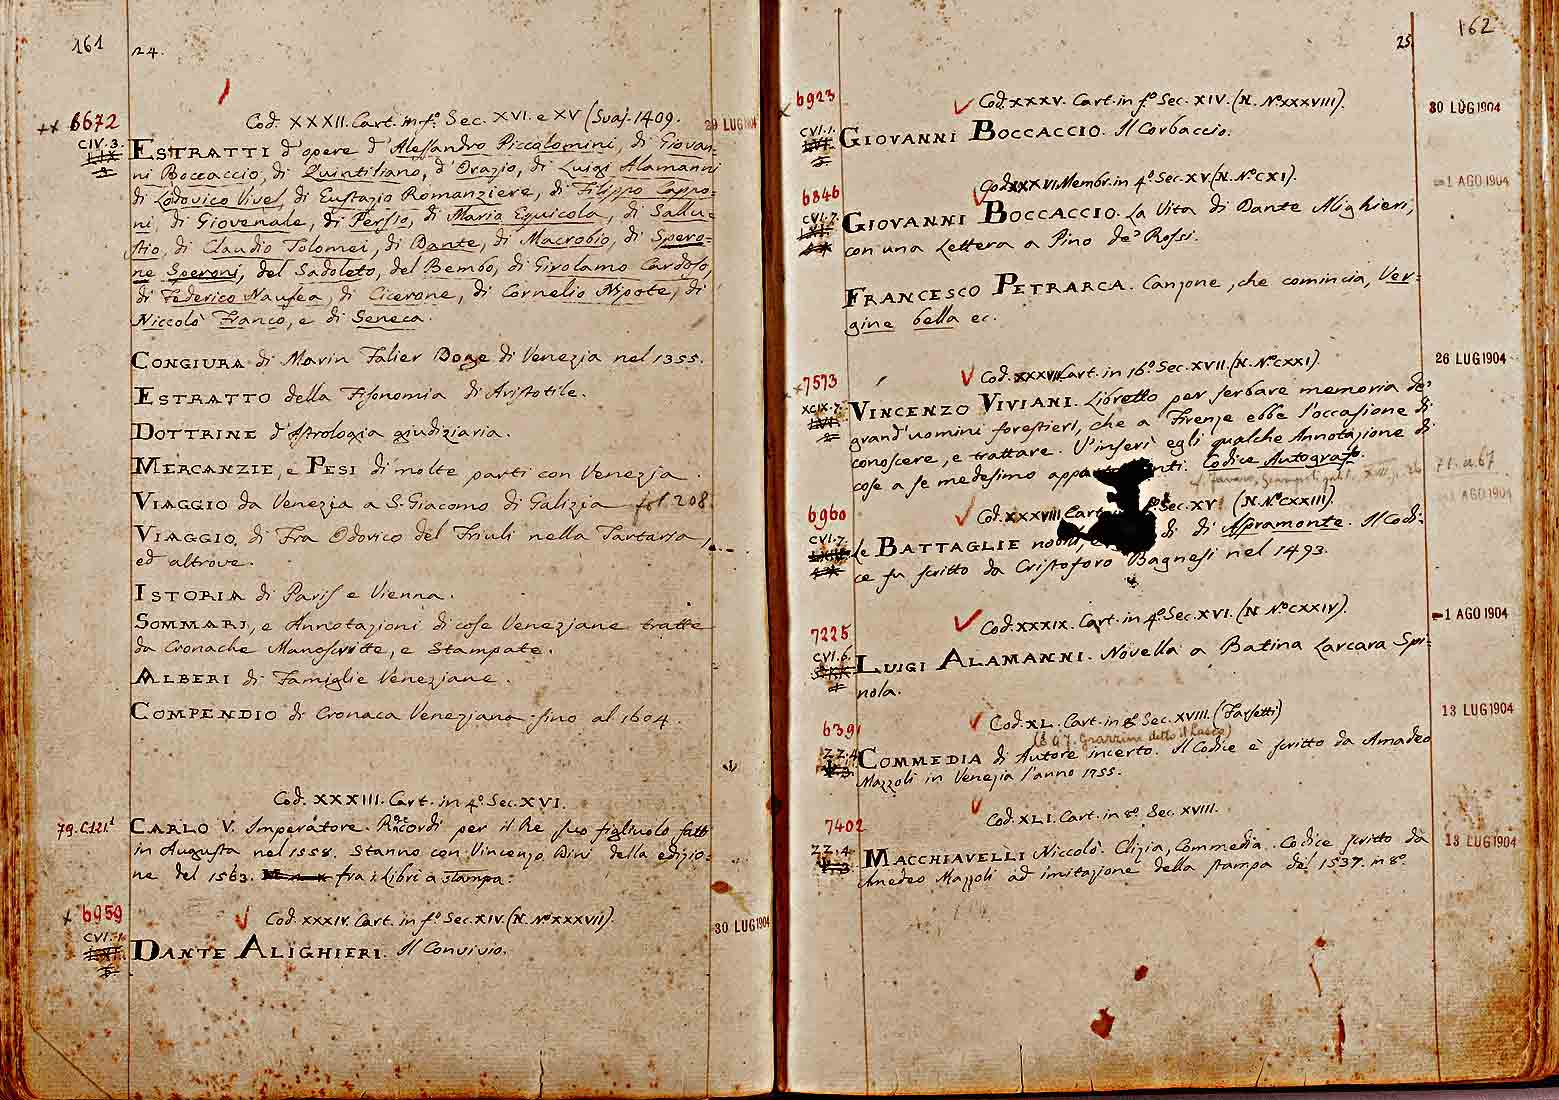 161
24.
6672
Cod. XXXII. Cart. in f.º Sec. XVI. e XV (Svaj. 1409.
29 LUG 1904
CIV. 3.
ESTRATTI d'opere d'Alessandro Piccolomini, di Giovan-
ni Boccaccio, di Quintiliano, d'Orazio, di Luigi Alamanni
di Lodovico Vives, di Eustazio Romanziere, di Filippo Cappo-
ni, di Giovenale, di Persio, di Mario Equicola, di Sallu-
stio, di Claudio Tolomei, di Dante, di Macrobio, di Spero-
ne Speroni, del Sadoleto, del Bembo, di Girolamo Cardoso,
di Federico Nausea, di Cicerone, di Cornelio Nipote, di
Niccolò Franco, e di Seneca.
CONGIURA di Marin Falier Doge di Venezia nel 1355.
ESTRATTO della Fisonomia di Aristotile.
DOTTRINE d'Astrologia giudiziaria.
MERCANZIE, e PESI di molte parti con Venezia.
VIAGGIO da Venezia a S. Giacomo di Galizia fol. 208.
VIAGGIO di Fra Odorico del Friuli nella Tartaria,
ed altrove.
ISTORIA di Paris e Vienna.
SOMMARI, e Annotazioni di cose Veneziane tratte
da Cronache Manoscritte, e Stampate.
ALBERI di Famiglie Veneziane.
COMPENDIO di Cronaca Veneziana fino al 1604.
Cod. XXXIII. Cart. in 4.º Sec. XVI.
79. C. 121.
CARLO V. Imperatore. Ricordi per il Re suo figliuolo fatti
in Augusta nel 1558. Stanno con Vincenzo Dini della edizio-
ne del 1563. fra i Libri a stampa.
6959
Cod. XXXIV. Cart. in f.º Sec. XIV. (N. Nº XXXVII).
30 LUG 1904
CVI. 1.
DANTE ALIGHIERI. Il Convivio.
162
25
6923
Cod. XXXV. Cart. in f.º Sec. XIV. (N. Nº XXXVIII).
30 LUG 1904
CVI. 1.
GIOVANNI BOCCACCIO. Il Corbaccio.
6846
Cod. XXXVI. Membr. in 4.º Sec. XV. (N. Nº CXI).
-1 AGO 1904
CVI. 7.
GIOVANNI BOCCACCIO. La Vita di Dante Alighieri,
con una Lettera a Pino de' Rossi.
FRANCESCO PETRARCA. Canzone, che comincia, Ver-
gine bella ec.
26 LUG 1904
7573
Cod. XXXVII. Cart. in 16.º Sec. XVII. (N. Nº CXXI).
XCIX. 7.
VINCENZO VIVIANI. Libretto per serbare memoria de'
grand'uomini forestieri, che a Firenze ebbe l'occasione di
conoscere, e trattare. V'inserì egli qualche Annotazione di
cose a se medesimo appartenenti. Codice Autografo.
71. a. 67
AGO 1904
6960
Cod. XXXVIII. Cart. Sec. XV (N. Nº CXXIII).
CVI. 7.
Le BATTAGLIE di di Aspramonte. Il Codi-
ce fu scritto da Cristoforo Bagnesi nel 1493.
-1 AGO 1904
7225
Cod. XXXIX. Cart. in 4.º Sec. XVI. (N. Nº CXXIV).
CVI. 6.
LUIGI ALAMANNI. Novella a Batina Larcara Spi-
nola.
13 LUG 1904
6391
Cod. XL. Cart. in 8.º Sec. XVIII. (Farsetti)
(è q. Grazzini detto il Lasca)
ZZ. 4
COMMEDIA di Autore incerto. Il Codice è scritto da Amadeo
Mazzoli in Venezia l'anno 1755.
7402
Cod. XLI. Cart. in 8.º Sec. XVIII.
13 LUG 1904
ZZ. 4
MACCHIAVELLI Niccolò. Clizia, Commedia. Codice scritto da
Amedeo Mazzoli ad imitazione della stampa del 1537. in 8.º